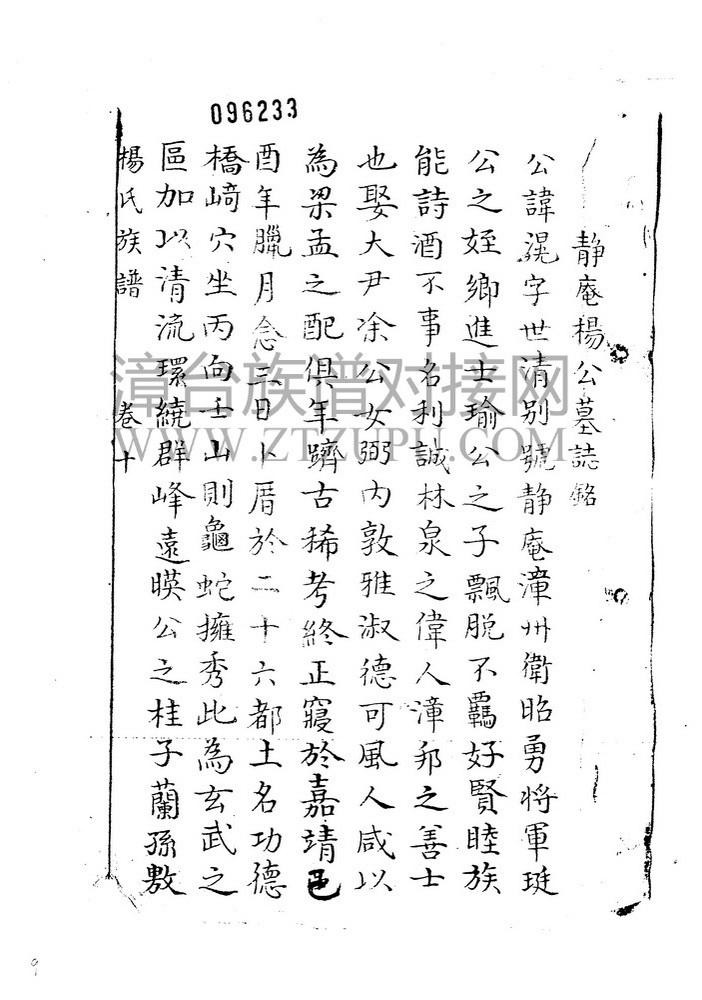 096233
静庵楊公墓誌銘
公諱滉字世清别號静庵漳州衛昭勇將軍珽
公之姪鄉進士瑜公之子飄脱不羈好賢睦族
能詩酒不事名利誠林泉之偉人漳邦之善士
也娶大尹凃公女弼内敦雅淑德可風人咸以
為梁孟之配俱年躋古稀考終正寢於嘉靖
酉年臘月念三日卜厝於二十六都土名功德
橋﨑穴坐丙向壬山則龜蛇擁秀此為玄武之
區加以清流環繞群峰遠暎公之桂子蘭孫數
楊氏族譜 卷十
漳台族谱对接网
WWW.ZTZUPU.COM
9